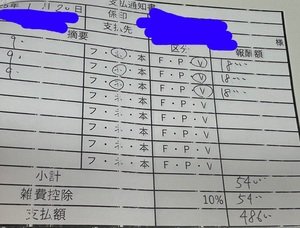 年 1月20日 支払通知書
係印
支払先 様
摘要 区分 報酬額
9. フ・ホ・本 F・P・V 18…
9. フ・ホ・本 F・P・V 18…
9. フ・ホ・本 F・P・V 18…
フ・ホ・本 F・P・V
フ・ホ・本 F・P・V
フ・ホ・本 F・P・V
フ・ホ・本 F・P・V
フ・ホ・本 F・P・V
小計 54…
雑費控除 10% 54…
支払額 486…